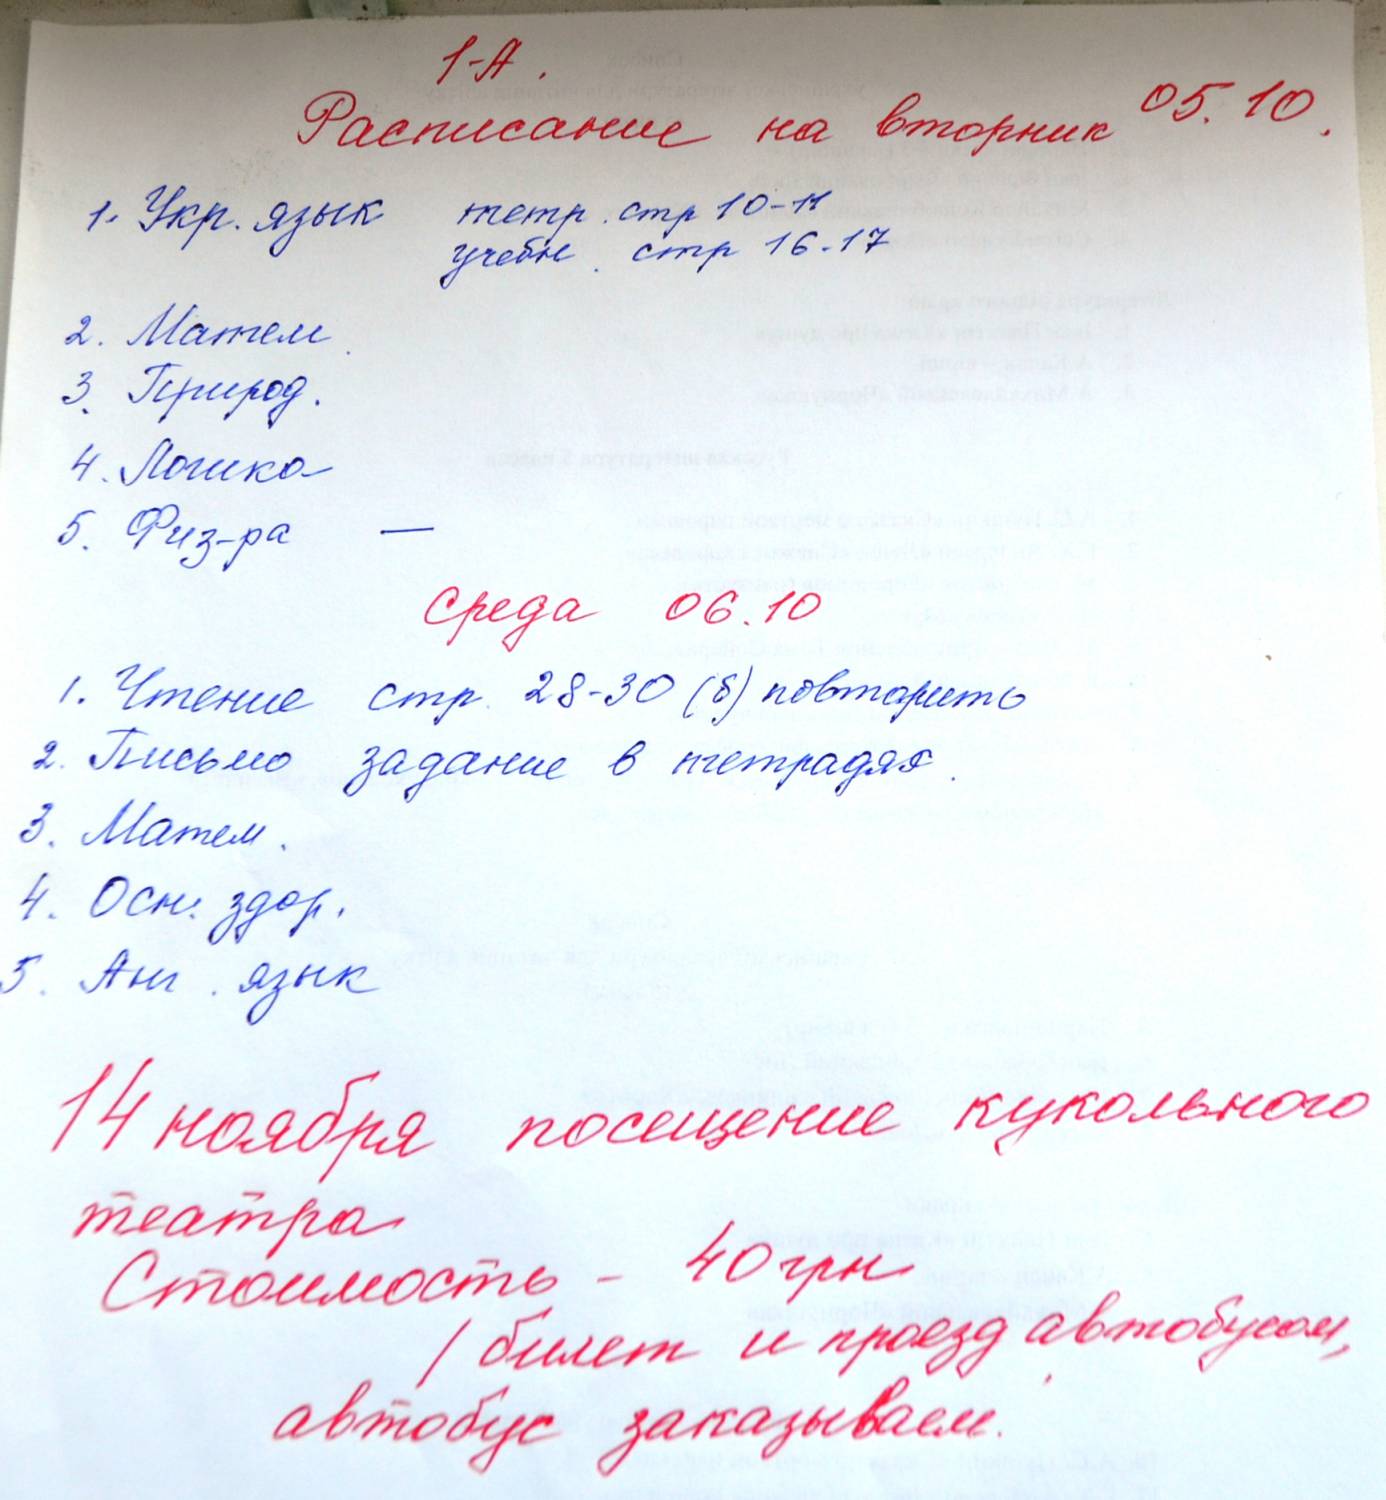 1-А.
Расписание на вторник 05.10.
1. Укр. язык тетр. стр 10-11
учебн. стр 16-17
2. Матем.
3. Природ.
4. Логика
5. Физ-ра —
Среда 06.10
1. Чтение стр. 28-30 (б) повторить
2. Письмо задание в тетрадях.
3. Матем.
4. Осн. здор.
5. Анг. язык
14 ноября посещение кукольного
театра
Стоимость - 40 грн
/ билет и проезд автобусом,
автобус заказываем.